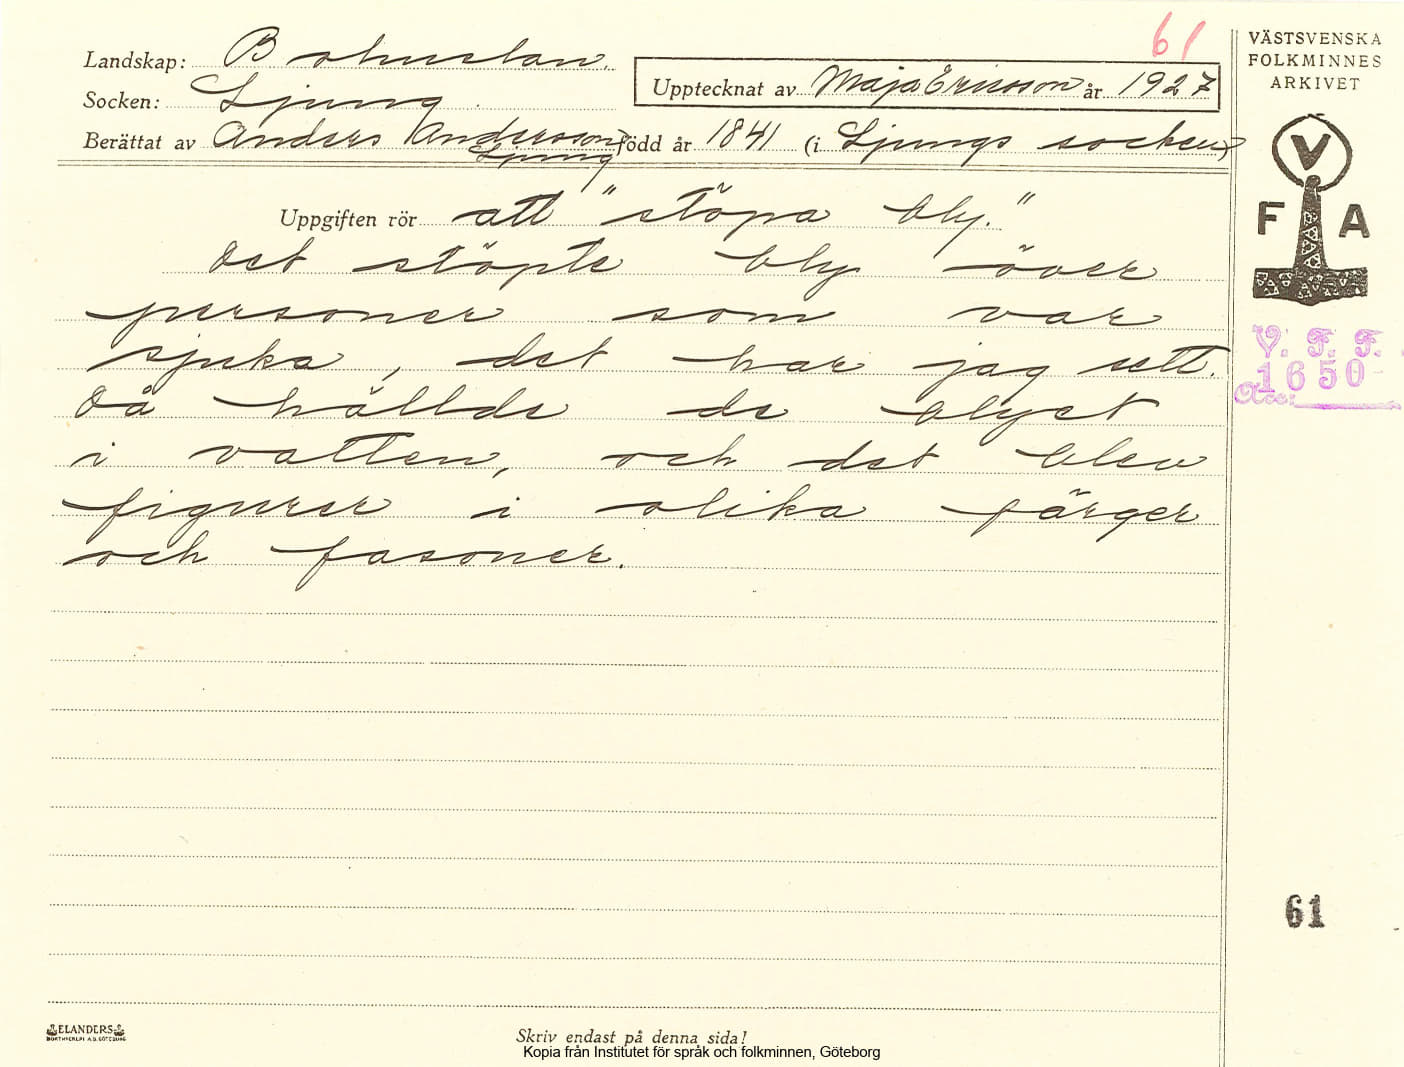 61
Landskap: Bohuslän.
Socken: Ljung.
Upptecknat av Maja Ericsson år 1927
Berättat av Anders Andersson född år 1841 (i Ljungs socken)
Ljung
Uppgiften rör att "stöpa bly."
Det stöpte bly över
personer som var
sjuka, det har jag sett.
Då hällde de blyet
i vatten, och det blev
figurer i olika färger
och fasoner.
VÄSTSVENSKA
FOLKMINNES
ARKIVET
V
F A
V. F. F.
1650
Acc:
61
ELANDERS
BOKTRYCKERI A.B. GÖTEBORG
Skriv endast på denna sida!
Kopia från Institutet för språk och folkminnen, Göteborg